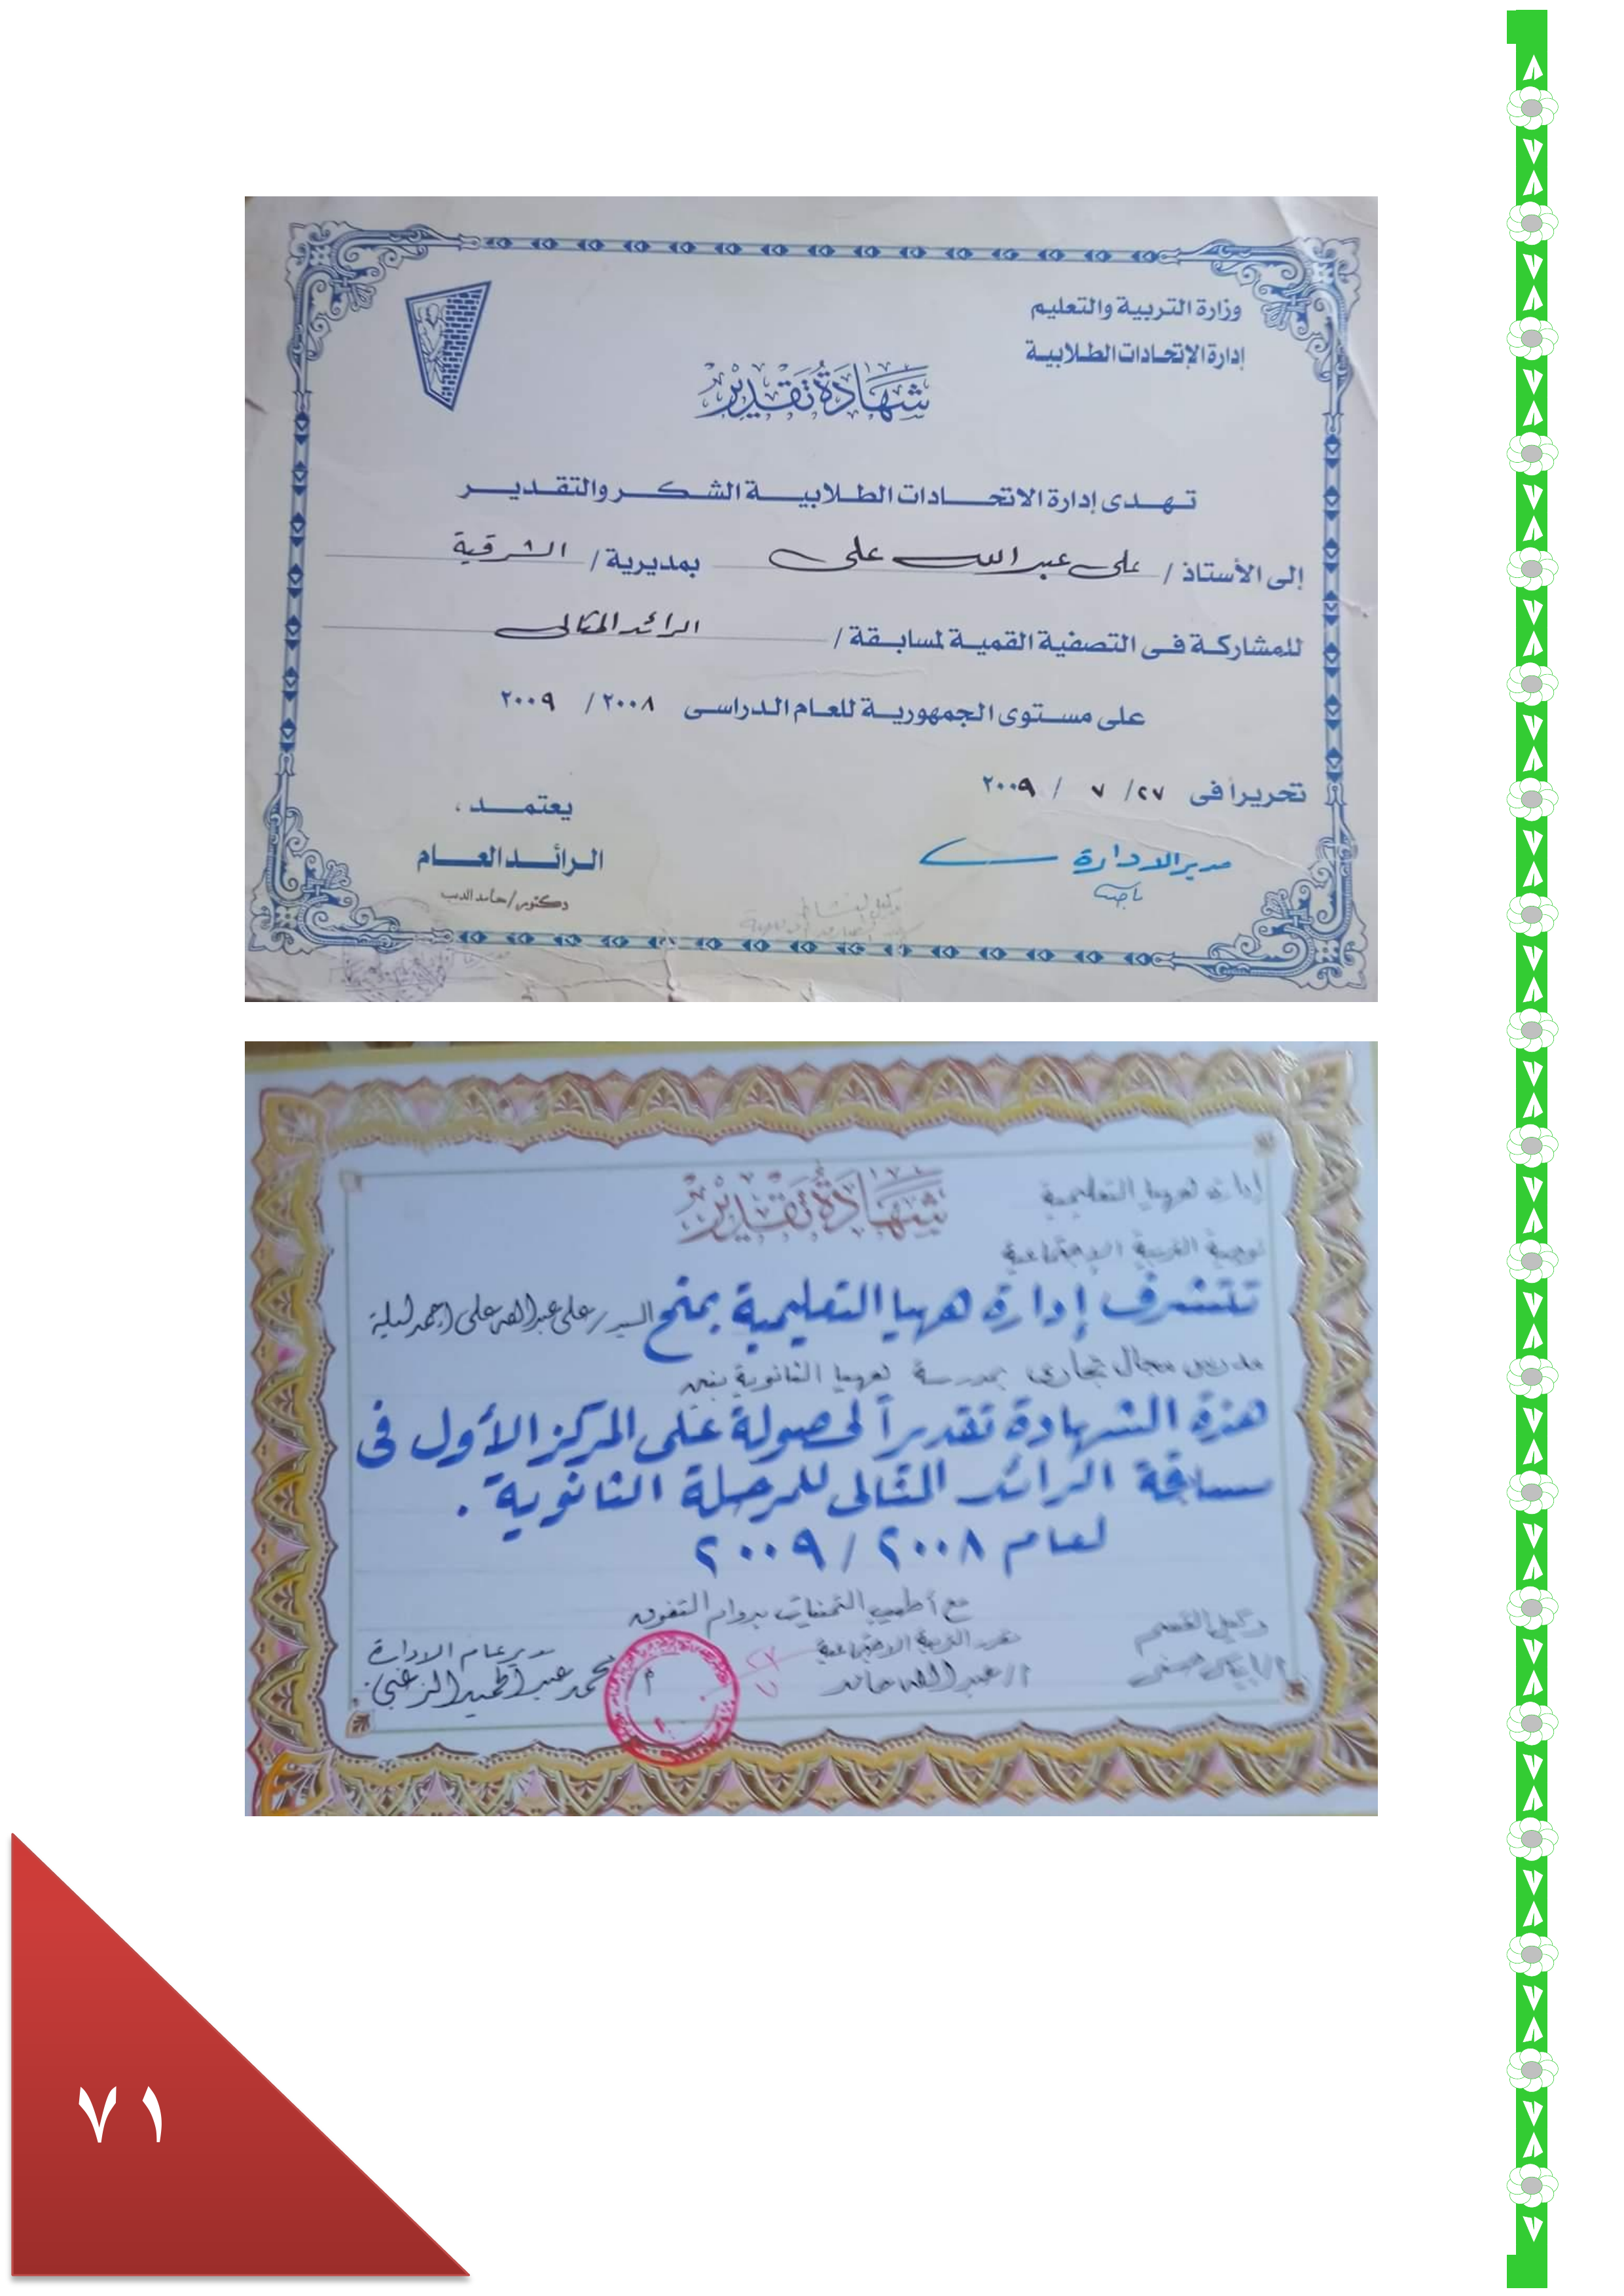 وزارة التربية والتعليم
إدارة الإتحادات الطلابية
شهادة تقدير
تهدى إدارة الاتحادات الطلابية الشكر والتقدير
إلى الأستاذ / على عبد الله على بمديرية / الشرقية
للمشاركة فى التصفية القمية لمسابقة / الرائد المثالى
على مستوى الجمهورية للعام الدراسى ٢٠٠٨ / ٢٠٠٩
تحريرا فى ٢٧ / ٧ / ٢٠٠٩
يعتمد ،
مدير الادارة
الرائد العام
دكتور / حامد الديب
شهادة تقدير
إدارة ههيا التعليمية
توجيه التربية الاجتماعية
تتشرف إدارة ههيا التعليمية بمنح السيد / على عبد الله على احمد ليلة
مدرس مجال تجارى بمدرسة ههيا الثانوية بنين
هذه الشهادة تقديراً لحصولة على المركز الأول فى
مسابقة الرائد المثالى للمرحلة الثانوية .
لعام ٢٠٠٨ / ٢٠٠٩
مع أطيب التمنيات بدوام التفوق
وكيل القسم
التربية الاجتماعية
مدير عام الادارة
أ / عبد الله حامد
محمد عبد الحميد الزغبى
٧١